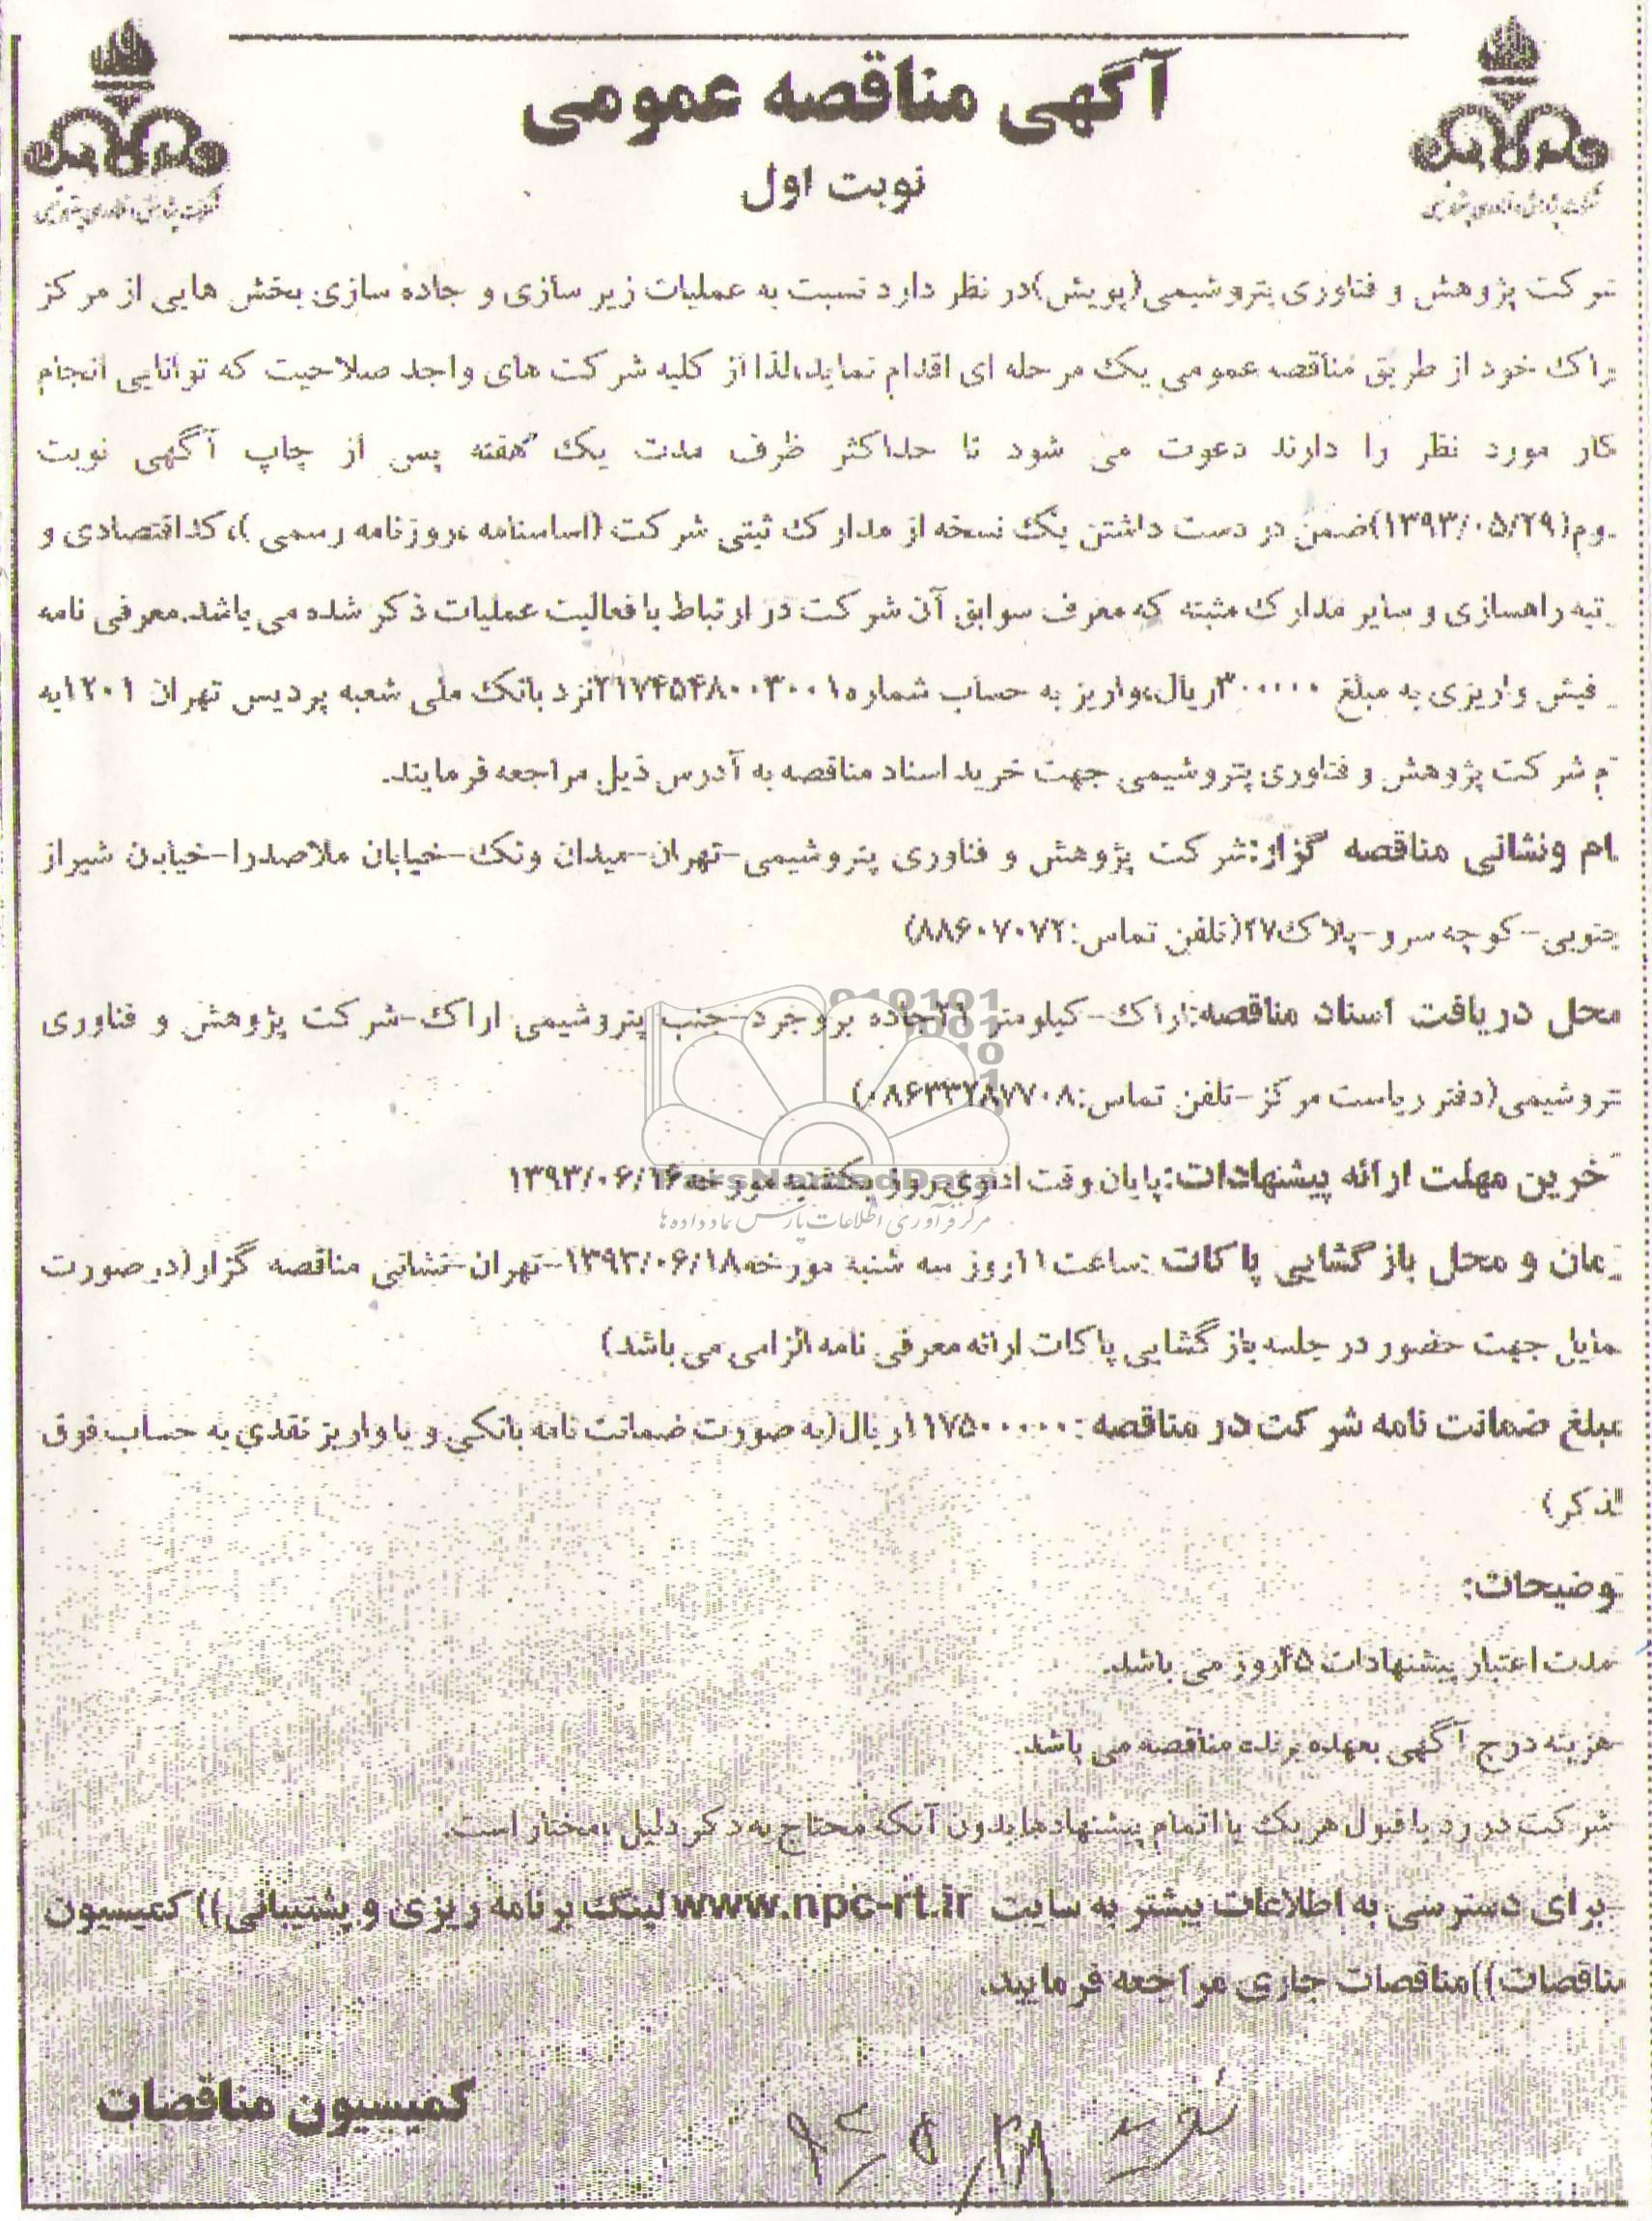 آگهی مناقصه عمومی
نوبت اول
شرکت پژوهش و فناوری پتروشیمی(پویش)در نظر دارد نسبت به عملیات زیر سازی و جاده سازی بخش هایی از مرکز
راک خود از طریق مناقصه عمومی یک مرحله ای اقدام نماید،لذا از کلیه شرکت های واجد صلاحیت که توانایی انجام
کار مورد نظر را دارند دعوت می شود تا حداکثر ظرف مدت یک هفته پس از چاپ آگهی نوبت
وم(۱۳۹۳/۰۵/۲۹)ضمن در دست داشتن یک نسخه از مدارک ثبتی شرکت (اساسنامه ،روزنامه رسمی )، کداقتصادی و
تبه راهسازی و سایر مدارک مثبته که معرف سوابق آن شرکت در ارتباط با فعالیت عملیات ذکر شده می باشد.معرفی نامه
فیش واریزی به مبلغ ۳۰۰۰۰۰ریال،واریز به حساب شماره۲۱۷۴۵۴۸۰۰۳۰۰۱نزد بانک ملی شعبه پردیس تهران ۱۲۰۱به
م شرکت پژوهش و فناوری پتروشیمی جهت خرید اسناد مناقصه به آدرس ذیل مراجعه فرمایند.
ام ونشانی مناقصه گزار:شرکت پژوهش و فناوری پتروشیمی-تهران-میدان ونک-خیابان ملاصدرا-خیابان شیراز
جنوبی-کوچه سرو-پلاک۲۷(تلفن تماس:۸۸۶۰۷۰۷۲)
محل دریافت اسناد مناقصه:اراک-کیلومتر ۲۱جاده بروجرد-جنب پتروشیمی اراک-شرکت پژوهش و فناوری
تروشیمی(دفتر ریاست مرکز-تلفن تماس:۰۸۶۳۳۲۸۷۷۰۸)
خرین مهلت ارائه پیشنهادات:پایان وقت اداری روز یکشنبه مورخه۱۳۹۳/۰۶/۱۶
ParsNamadData
مرکز فرآوری اطلاعات پارس نماد داده ها
زمان و محل بازگشایی پاکات :ساعت۱۱روز سه شنبه مورخه۱۳۹۳/۰۶/۱۸-تهران-نشانی مناقصه گزار(در صورت
مایل جهت حضور در جلسه بازگشایی پاکات ارائه معرفی نامه الزامی می باشد)
مبلغ ضمانت نامه شرکت در مناقصه :۱۱۷۵۰۰۰۰۰ریال(به صورت ضمانت نامه بانکی و یا واریز نقدی به حساب فوق
الذکر)
توضیحات:
مدت اعتبار پیشنهادات ۴۵روز می باشد.
-هزینه درج آگهی بعهده برنده مناقصه می باشد.
شرکت در رد یا قبول هر یک یا اتمام پیشنهادها بدون آنکه محتاج به ذکر دلیل ،مختار است.
-برای دسترسی به اطلاعات بیشتر به سایت www.npc-rt.ir لینک برنامه ریزی و پشتیبانی)) کمیسیون
مناقصات))مناقصات جاری مراجعه فرمایید.
کمیسیون مناقصات